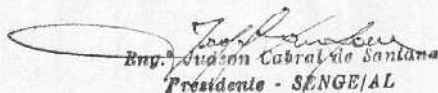 Eng.º Judson Cabral de Santana
Presidente - SENGE/AL